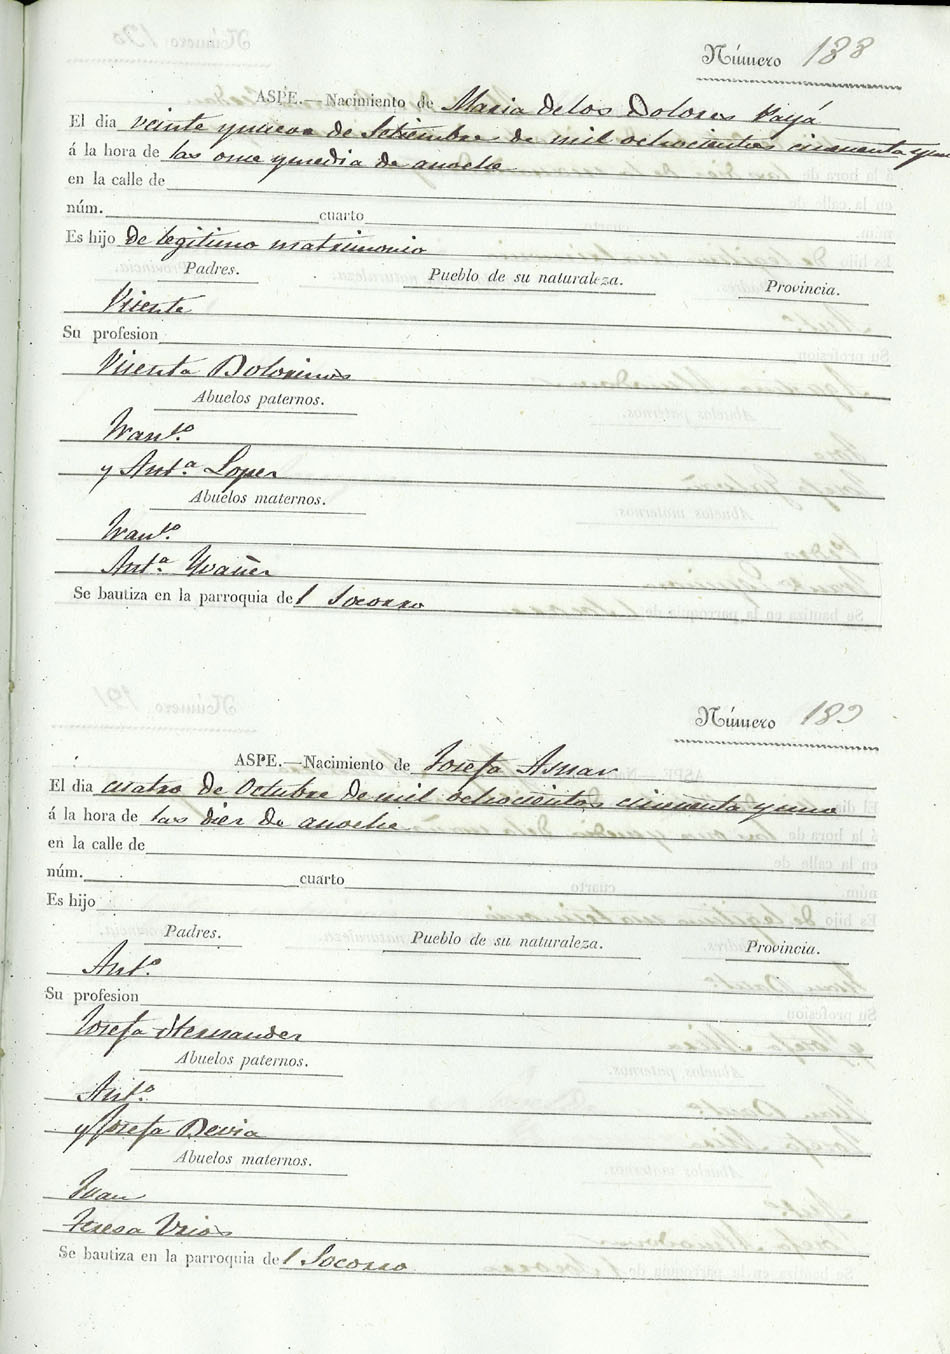 Número 188
ASPE.—Nacimiento de Maria de los Dolores Payá
El dia veinte y nueve de Setiembre de mil ochocientos cincuenta y uno
á la hora de las once y media de anoche
en la calle de
núm. cuarto
Es hijo de legitimo matrimonio
Padres. Pueblo de su naturaleza. Provincia.
Vicente
Su profesion
Vicenta Botorinos
Abuelos paternos.
Fran.co
y Ant.a Lopez
Abuelos maternos.
Fran.co
Ant.a Yvañez
Se bautiza en la parroquia del Socorro
Número 189
ASPE.—Nacimiento de Josefa Asnar
El dia cuatro de Octubre de mil ochocientos cincuenta y uno
á la hora de las diez de anoche
en la calle de
núm. cuarto
Es hijo
Padres. Pueblo de su naturaleza. Provincia.
Ant.o
Su profesion
Josefa Hernandez
Abuelos paternos.
Ant.o
y Josefa
Abuelos maternos.
Juan
Teresa Urios
Se bautiza en la parroquia del Socorro